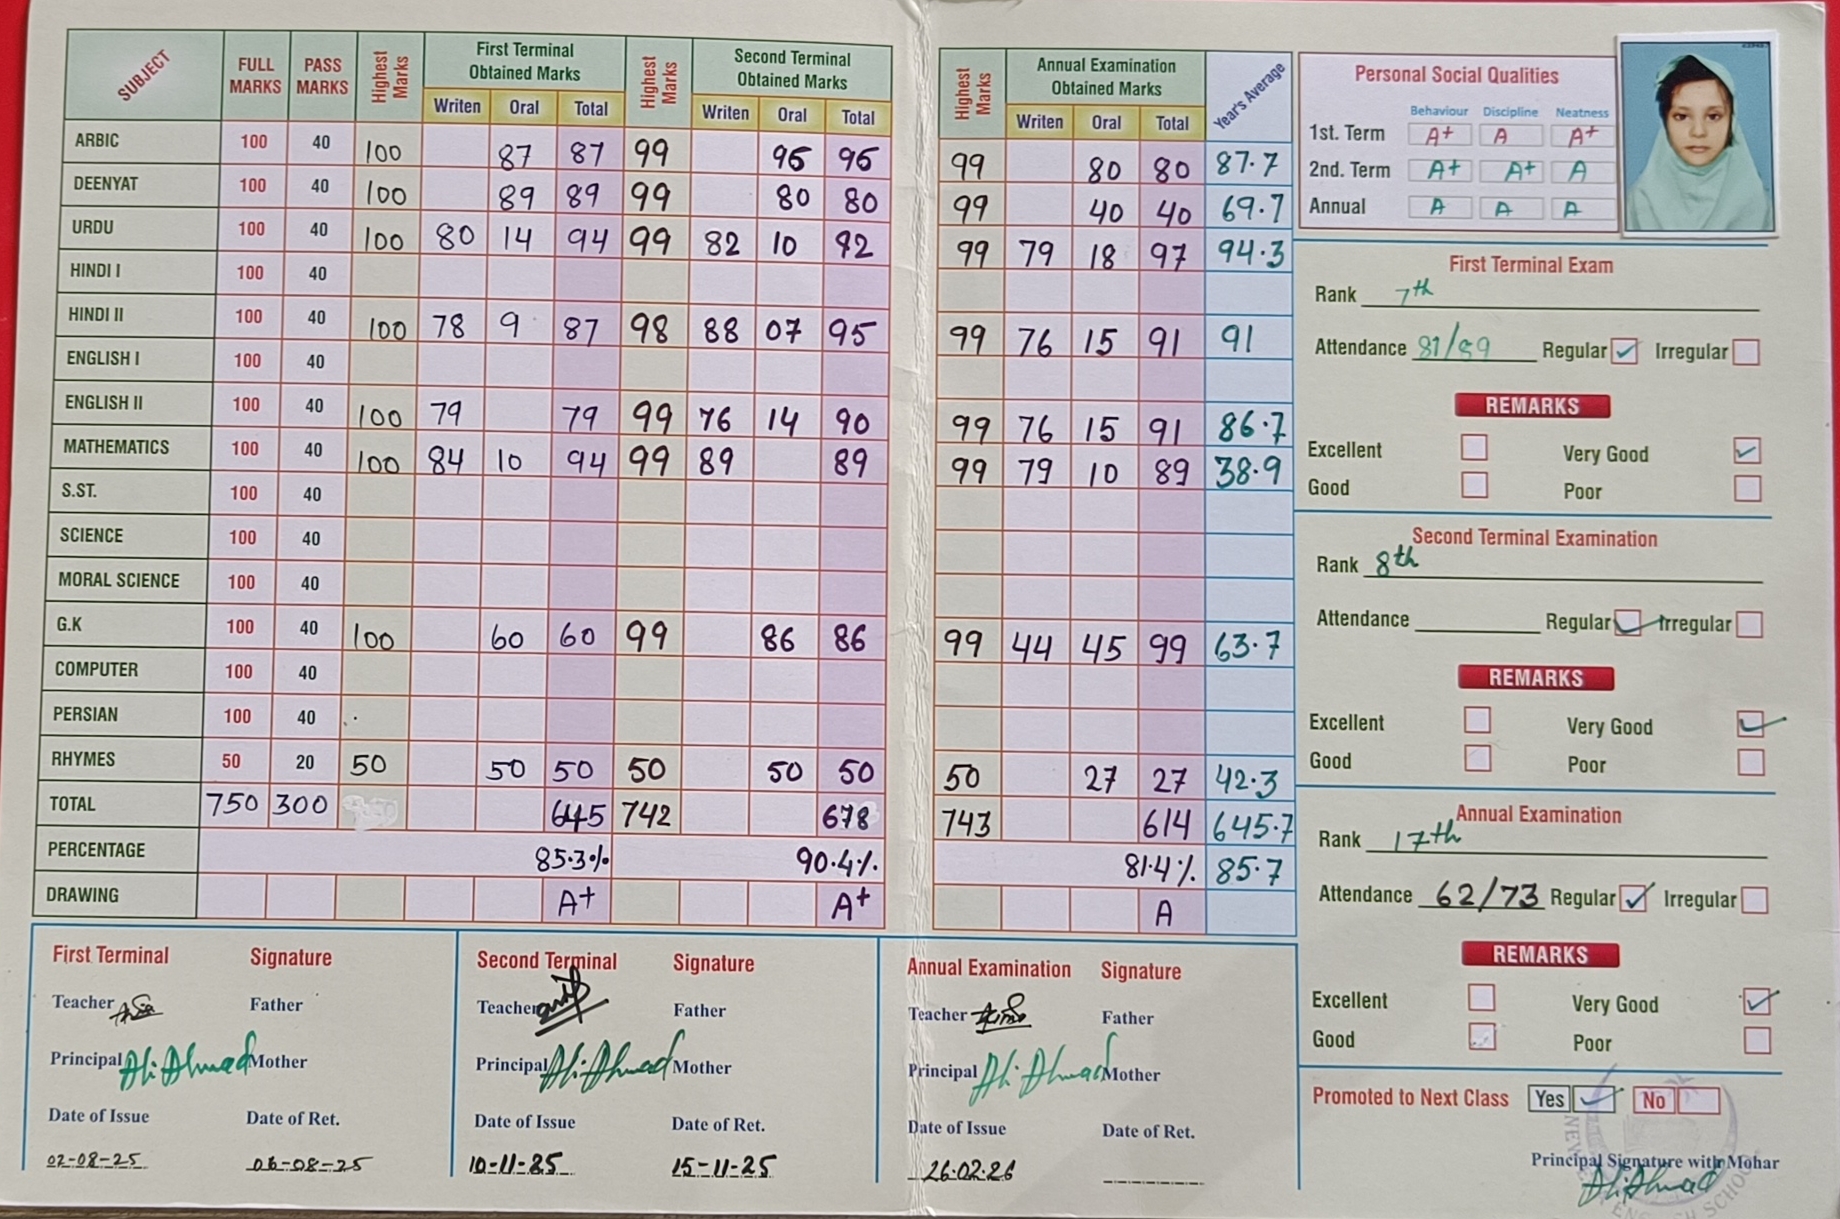 SUBJECT FULL MARKS PASS MARKS Highest Marks First Terminal Obtained Marks Highest Marks Second Terminal Obtained Marks Highest Marks Annual Examination Obtained Marks Year's Average
Writen Oral Total Writen Oral Total Writen Oral Total
ARBIC 100 40 100 87 87 99 96 96 99 80 80 87.7
DEENYAT 100 40 100 89 89 99 80 80 99 40 40 69.7
URDU 100 40 100 80 14 94 99 82 10 92 99 79 18 97 94.3
HINDI I 100 40
HINDI II 100 40 100 78 9 87 98 88 07 95 99 76 15 91 91
ENGLISH I 100 40
ENGLISH II 100 40 100 79 79 99 76 14 90 99 76 15 91 86.7
MATHEMATICS 100 40 100 84 10 94 99 89 89 99 79 10 89 38.9
S.ST. 100 40
SCIENCE 100 40
MORAL SCIENCE 100 40
G.K 100 40 100 60 60 99 86 86 99 44 45 99 63.7
COMPUTER 100 40
PERSIAN 100 40
RHYMES 50 20 50 50 50 50 50 50 50 27 27 42.3
TOTAL 750 300 645 742 678 743 614 645.7
PERCENTAGE 85.3% 90.4% 81.4% 85.7
DRAWING A+ A+ A
First Terminal Signature
Teacher Father
Principal Ali Ahmad Mother
Date of Issue Date of Ret.
02-08-25 06-08-25
Second Terminal Signature
Teacher Father
Principal Ali Ahmad Mother
Date of Issue Date of Ret.
10-11-25 15-11-25
Annual Examination Signature
Teacher Father
Principal Ali Ahmad Mother
Date of Issue Date of Ret.
26.02.26
Personal Social Qualities
Behaviour Discipline Neatness
1st. Term A+ A A+
2nd. Term A+ A+ A
Annual A A A
First Terminal Exam
Rank 7th
Attendance 81/89 Regular Irregular
REMARKS
Excellent Very Good
Good Poor
Second Terminal Examination
Rank 8th
Attendance Regular Irregular
REMARKS
Excellent Very Good
Good Poor
Annual Examination
Rank 17th
Attendance 62/73 Regular Irregular
REMARKS
Excellent Very Good
Good Poor
Promoted to Next Class Yes No
Principal Signature with Mohar
Ali Ahmad